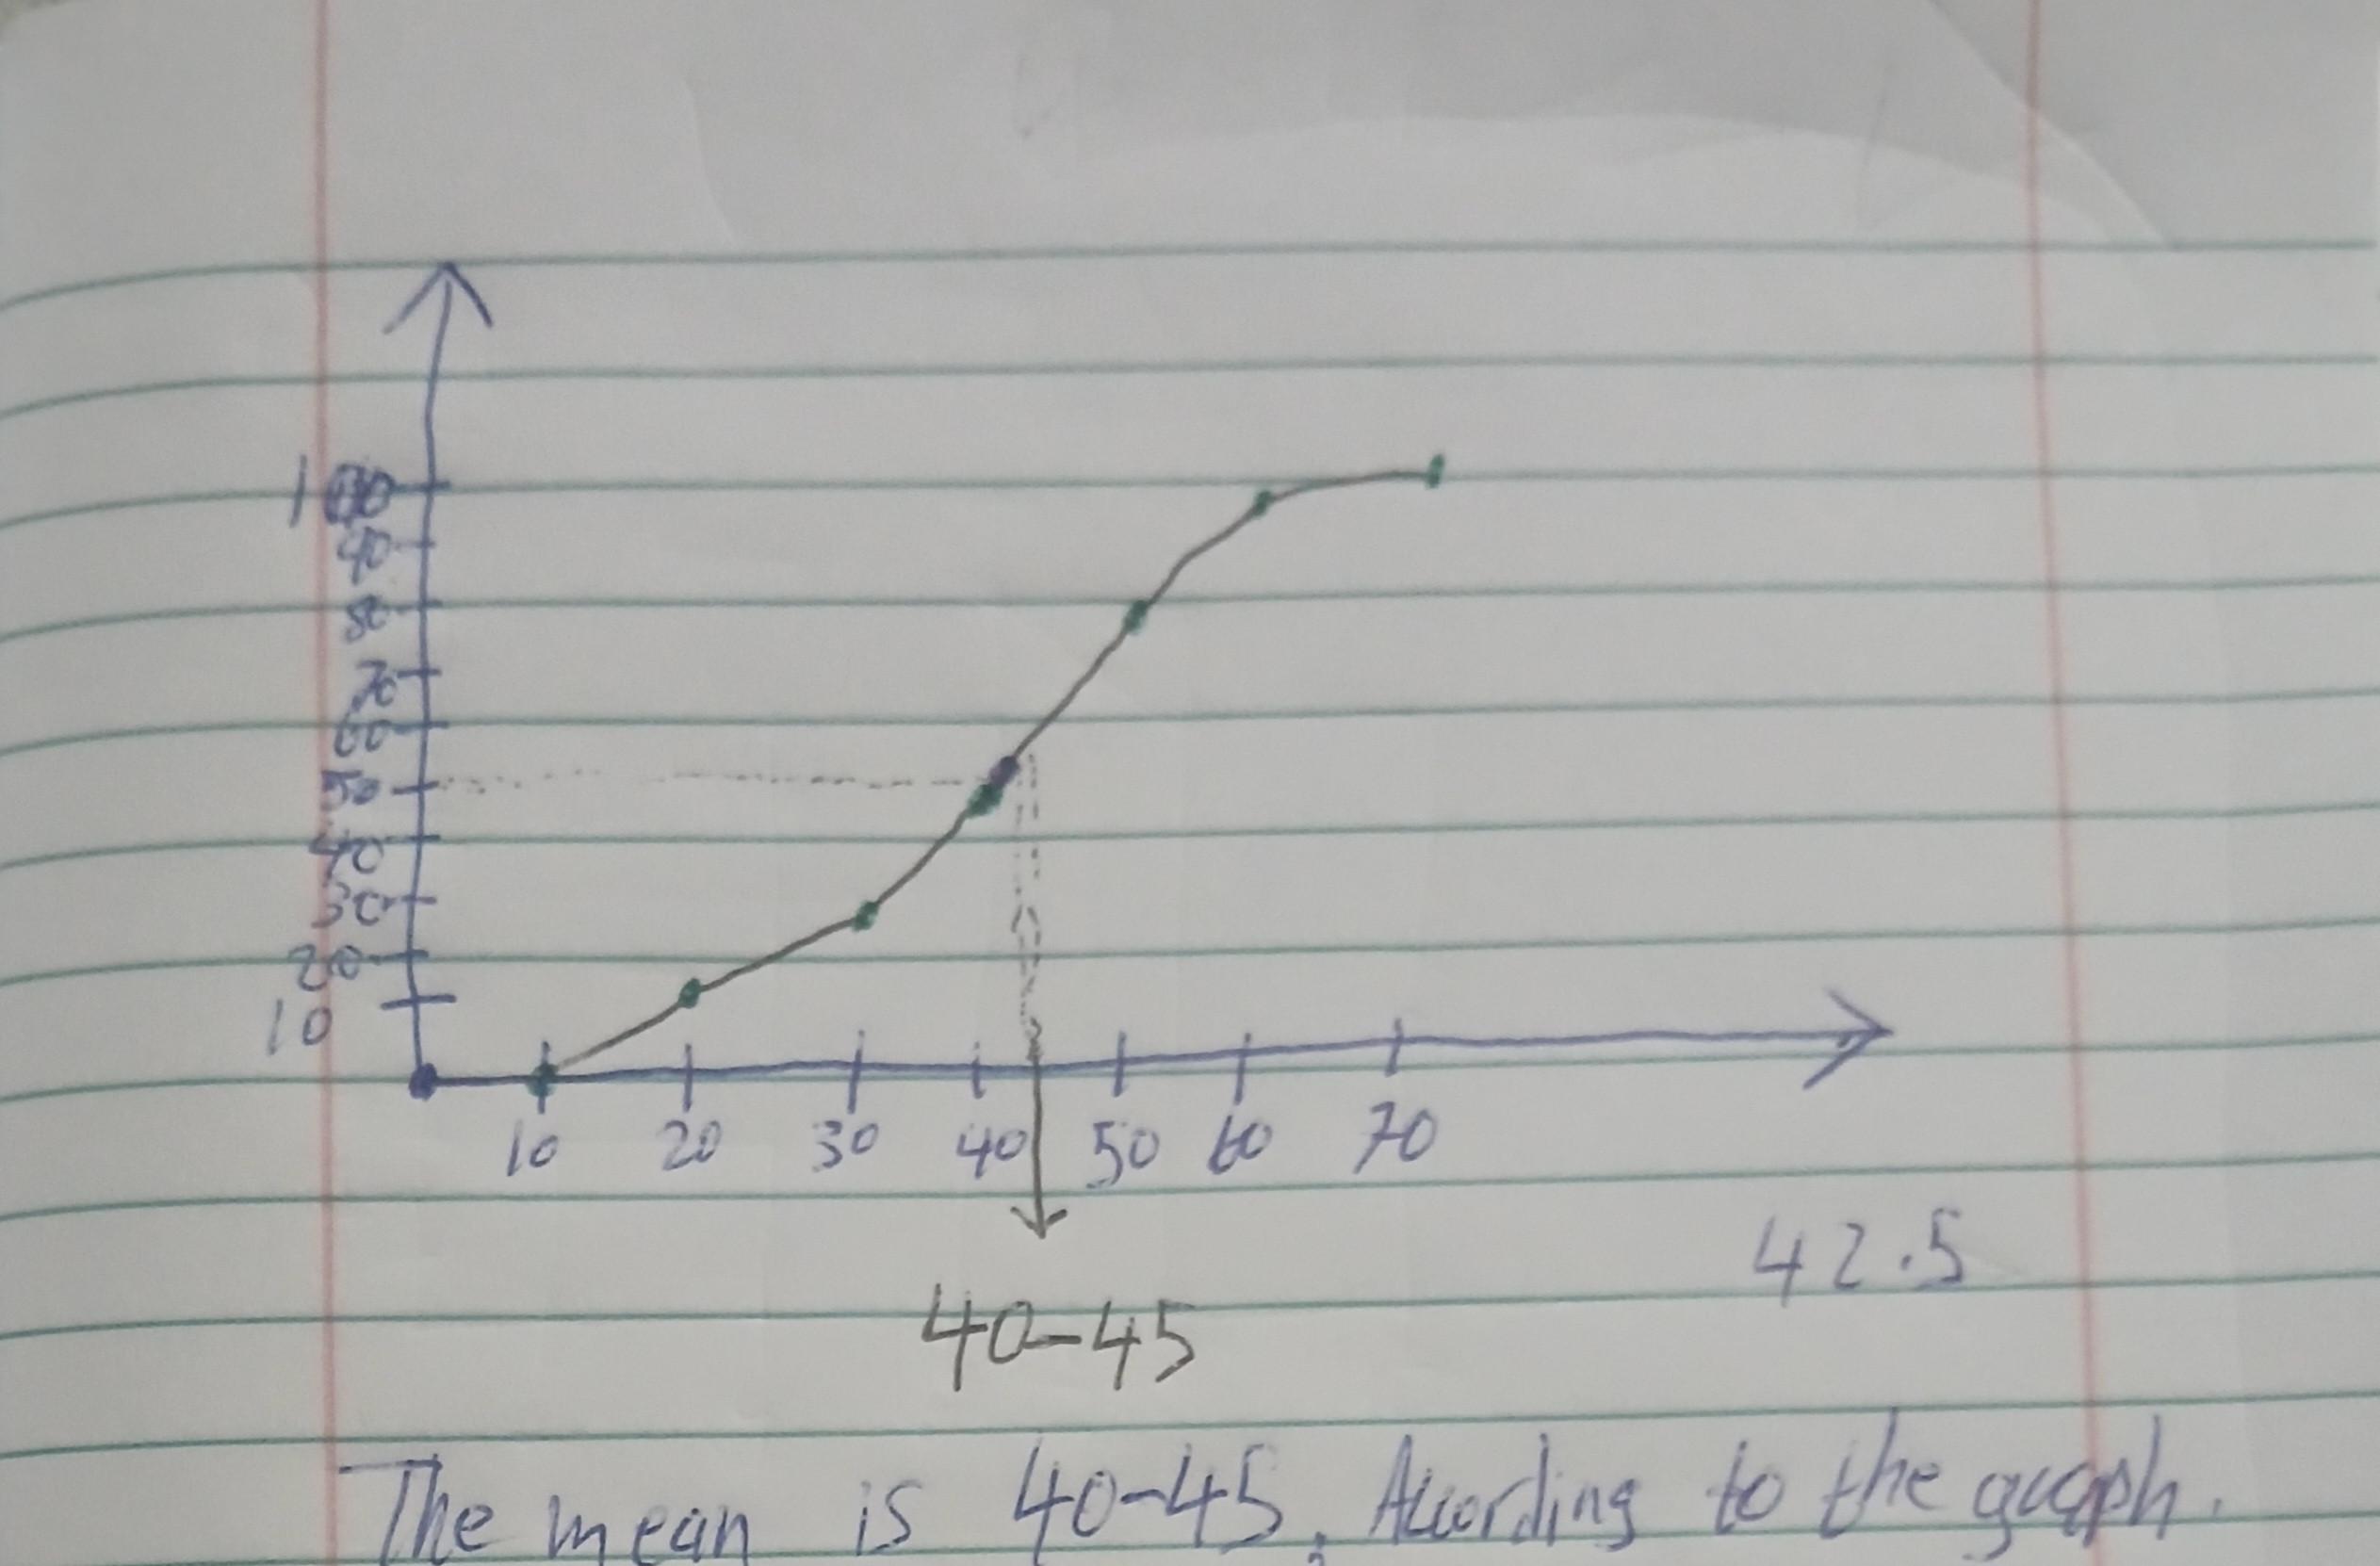 100
90
80
70
60
50
40
30
20
10
10 20 30 40 50 60 70
42.5
40-45
The mean is 40-45. According to the graph.